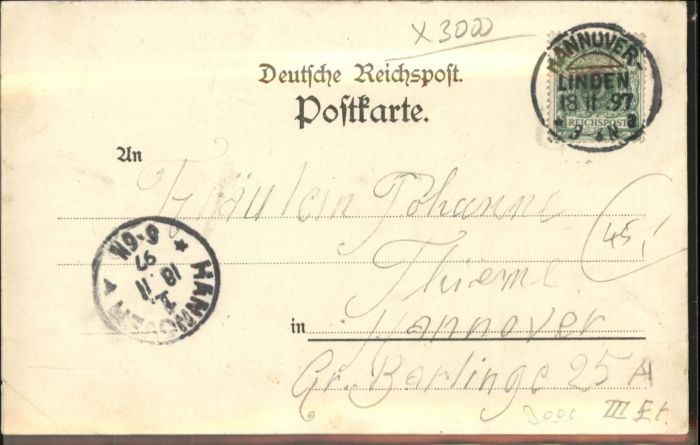 X 3000
HANNOVER-
LINDEN
18 11 97
* 3-4N a
REICHSPOST
Deutsche Reichspost.
Postkarte.
An
Fräulein Johanne
Thieme
45,
in Hannover
Gr. Barlinge 25 A
III Et.
3000
HANNOVER
1
18 11
97
* 5-6N